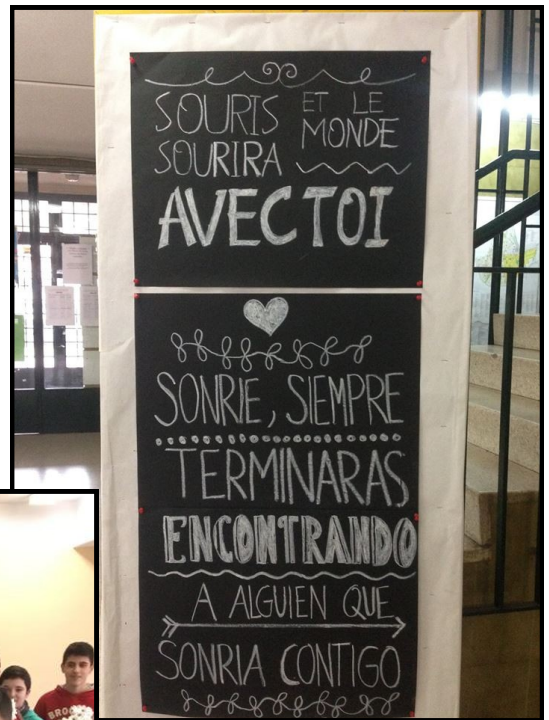 SOURIS ET LE
MONDE
SOURIRA
AVEC TOI
SONRIE, SIEMPRE
TERMINARAS
ENCONTRANDO
A ALGUIEN QUE
SONRIA CONTIGO
BROO